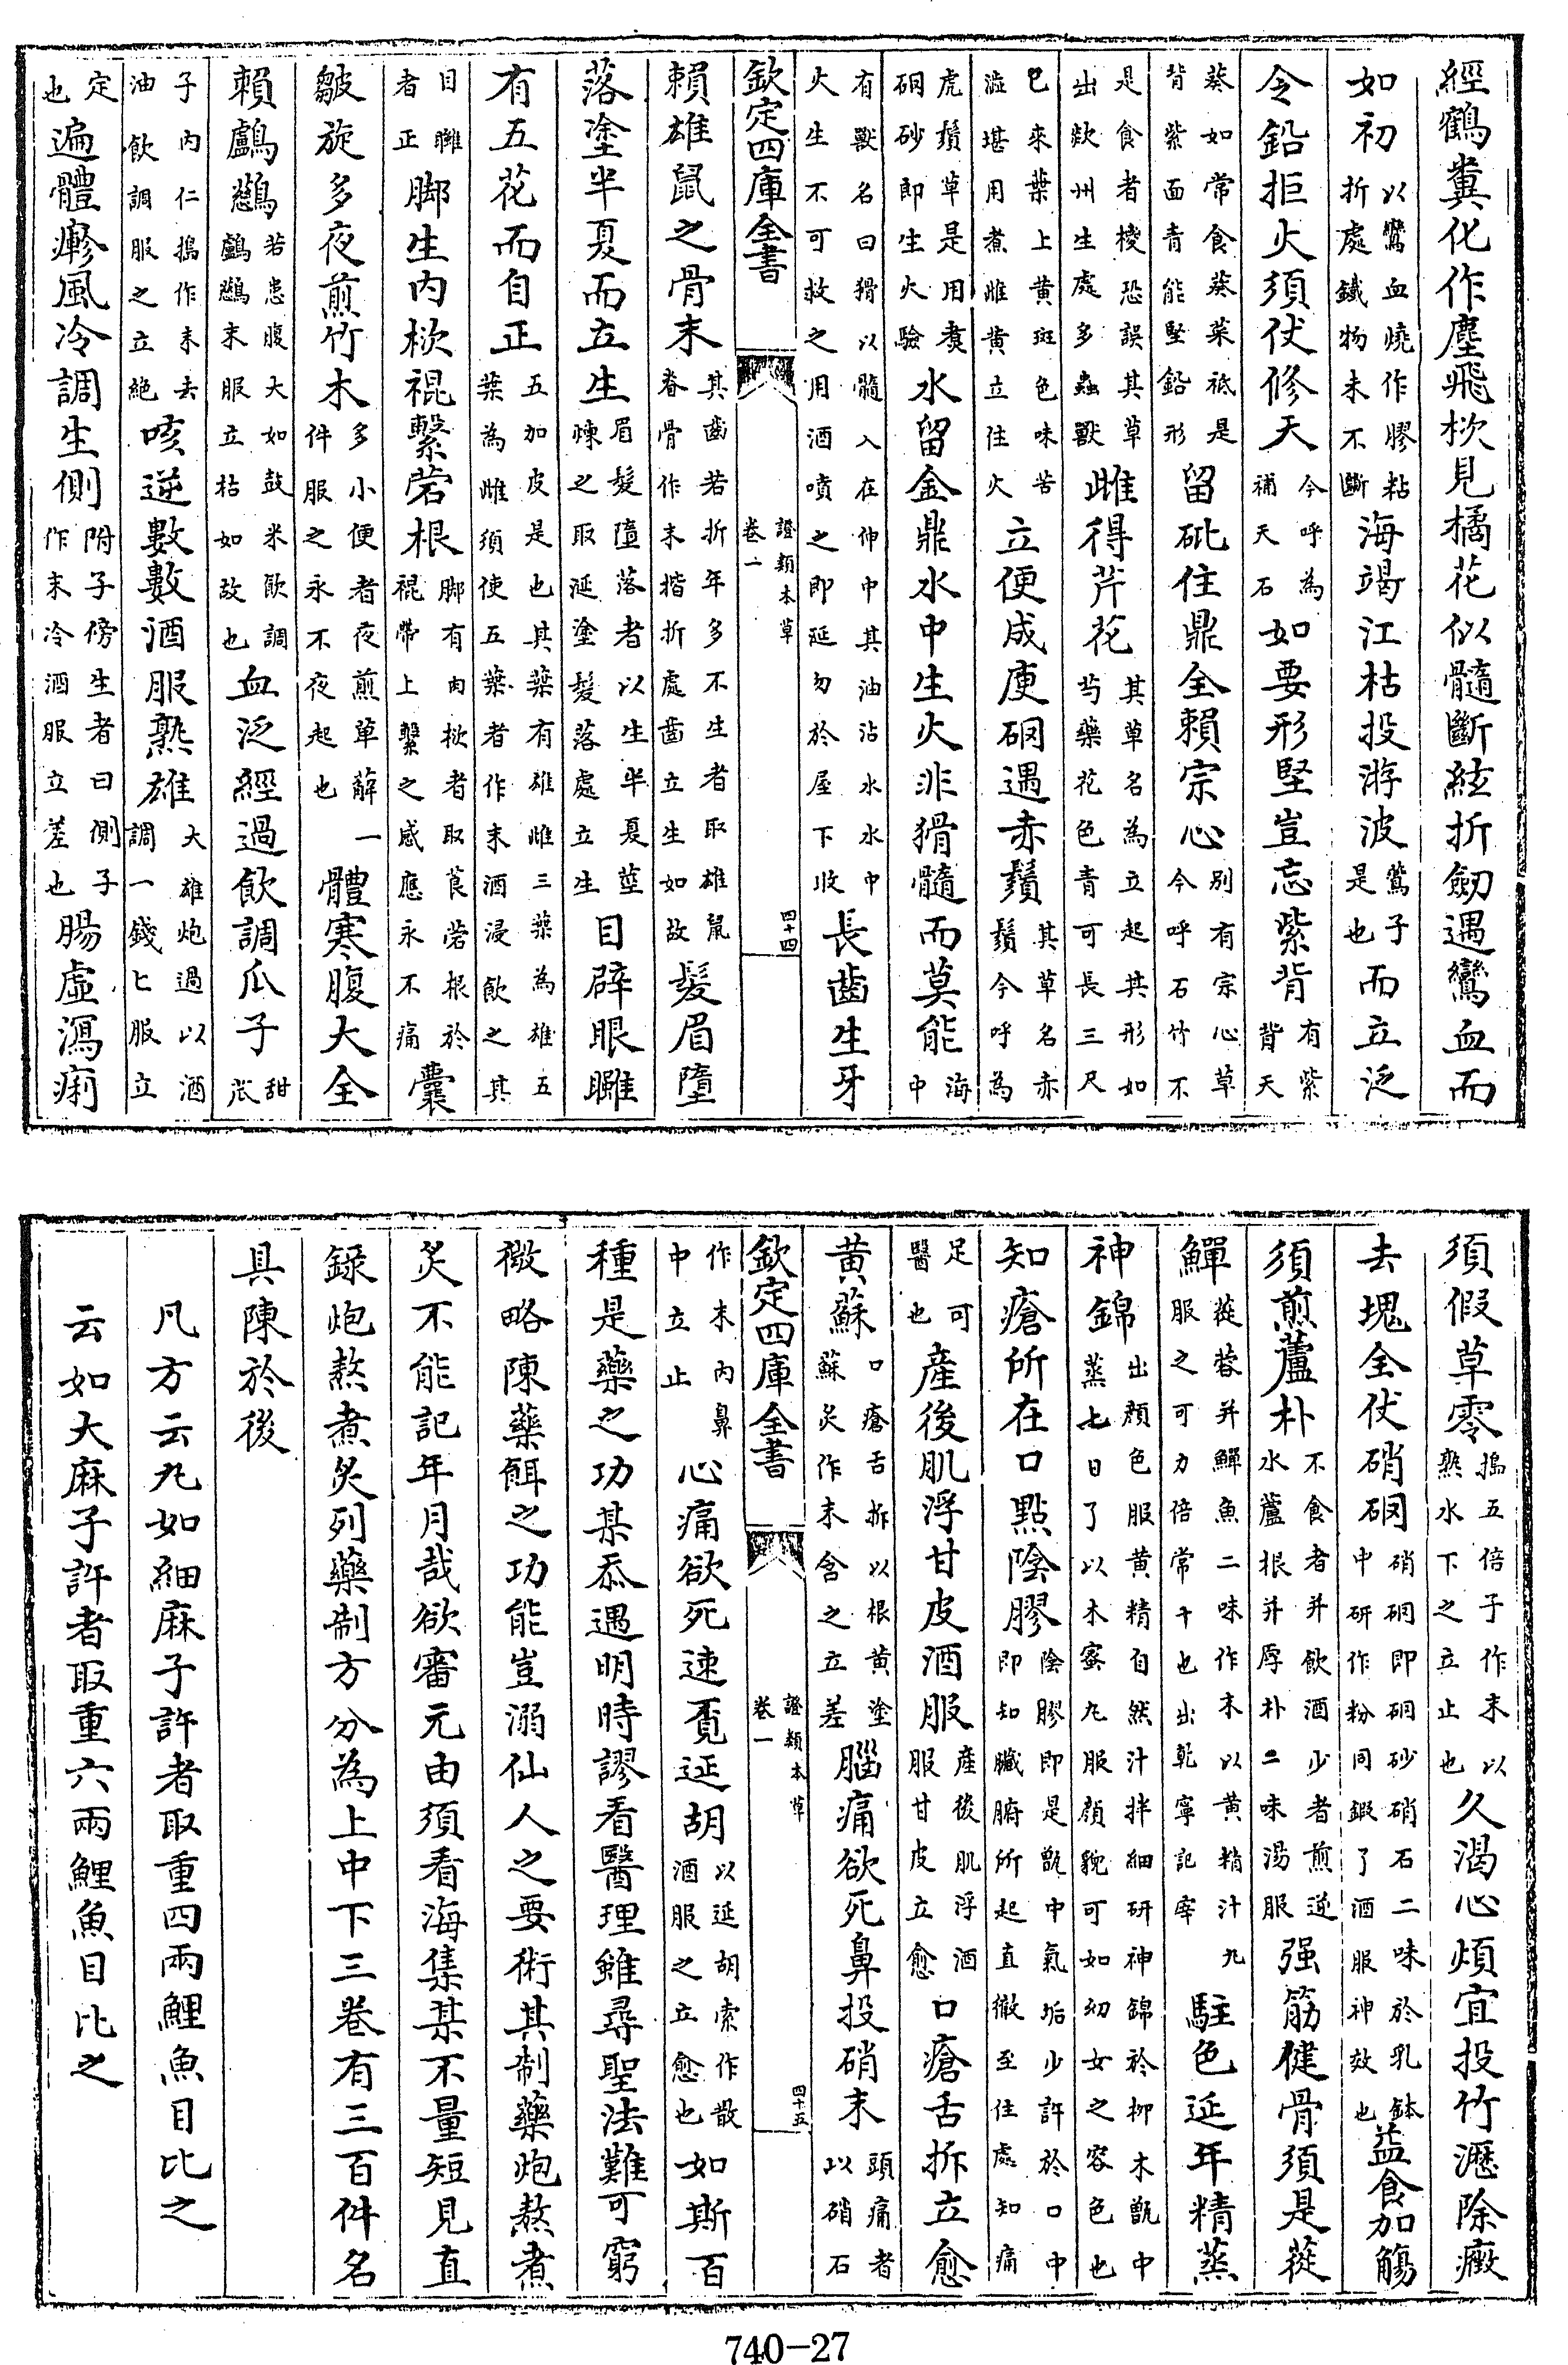 經鶴糞化作塵飛杴見橘花似髓斷絃折劒遇鸞血而
如初以鸞血燒作膠粘折處鐵物未不斷海竭江枯投游波鷰子是也而立泛
令鉛拒火須仗修天今呼為補天石如要形堅豈忘紫背有紫背天
葵如常食葵菜秪是背紫面青能堅鉛形留砒住鼎全賴宗心別有宗心草今呼石竹不
是食者椶恐誤其草出欻州生處多蟲獸雌得芹花其草名為立起其形如芍藥花色青可長三尺
已來葉上黄斑色味苦澁堪用煮雌黄立住火立便成庚硇遇赤鬚其草名赤鬚今呼為
虎鬚草是用煑硇砂即生火驗水留金鼎水中生火非猾髓而莫能海中
有獸名曰猾以髓入在仲中其油沾水水中火生不可救之用酒噴之即延勿於屋下收長齒生牙
欽定四庫全書 證類本草卷一 四十四
賴雄鼠之骨末其齒若折年多不生者取雄鼠脊骨作末揩折處齒立生如故髮眉墮
落塗半夏而立生眉髮墮落者以生半夏莖煉之取涎塗髮落處立生目辟眼䀨
有五花而自正五加皮是也其葉有雄雌三葉為雄五葉為雌須使五葉者作末酒浸飲之其
目䀨者正脚生肉杴裩繫菪根脚有肉杴者取莨菪根於裩帶上繫之感應永不痛囊
皺旋多夜煎竹木多小便者夜煎草薢一件服之永不夜起也體寒腹大全
賴鸕鷀若患腹大如鼓米飲調鸕鷀末服立枯如故也血泛經過飲調瓜子甜瓜
子內仁搗作末去油飲調服之立絕咳逆數數酒服熟雄大雄炮過以酒調一錢匕服立
定也遍體𤺋風冷調生側附子傍生者曰側子作末冷酒服立差也腸虛瀉痢
須假草零搗五倍子作末以熟水下之立止也久渴心煩宜投竹瀝除癥
去塊全仗硝硇硝硇即硇砂硝石二味於乳鉢中研作粉同煅了酒服神效也益食加觴
須煎蘆朴不食者并飲酒少者煎逆水蘆根并厚朴二味湯服强筋健骨須是蓯
鱓蓯蓉并鱓魚二味作末以黄精汁丸服之可力倍常十也出乾寧記宰駐色延年精蒸
神錦出顔色服黄精自然汁拌細研神錦於柳木甑中蒸七日了以木蜜丸服顔貌可如幼女之容色也
知瘡所在口點陰膠陰膠即是甑中氣垢少許於口中即知臟腑所起直徹至住處知痛
足可醫也產後肌浮甘皮酒服產後肌浮酒服甘皮立愈口瘡舌拆立愈
黄蘇口瘡舌拆以根黄塗蘇炙作末含之立差腦痛欲死鼻投硝末頭痛者以硝石
欽定四庫全書 證類本草卷一 四十五
作末內鼻中立止心痛欲死速覔延胡以延胡索作散酒服之立愈也如斯百
種是藥之功某忝遇明時謬看醫理雖尋聖法難可窮
微略陳藥餌之功能豈溺仙人之要術其制藥炮熬煮
炙不能記年月哉欲審元由須看海集某不量短見直
録炮熬煮炙列藥制方分為上中下三卷有三百件名
具陳於後
凡方云丸如細麻子許者取重四兩鯉魚目比之
云如大麻子許者取重六兩鯉魚目比之
740-27